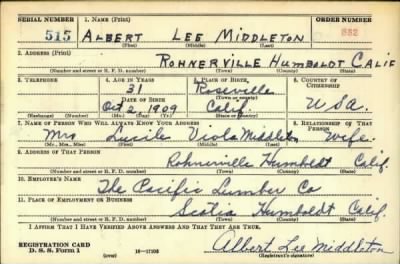 SERIAL NUMBER 1. NAME (Print) ORDER NUMBER
515 ALBERT LEE MIDDLETON 882
(First) (Middle) (Last)
2. ADDRESS (Print)
ROHNERVILLE HUMBOLDT CALIF
(Number and street or R. F. D. number) (Town) (County) (State)
3. TELEPHONE 4. AGE IN YEARS 5. PLACE OF BIRTH 6. COUNTRY OF CITIZENSHIP
31 Roseville
DATE OF BIRTH (Town or county)
Oct 2, 1909 Calif. USA.
(Exchange) (Number) (Mo.) (Day) (Yr.) (State or country)
7. NAME OF PERSON WHO WILL ALWAYS KNOW YOUR ADDRESS 8. RELATIONSHIP OF THAT PERSON
Mrs Lucile Viola Middleton Wife.
(Mr., Mrs., Miss) (First) (Middle) (Last)
9. ADDRESS OF THAT PERSON
Rohnerville Humboldt Calif.
(Number and street or R. F. D. number) (Town) (County) (State)
10. EMPLOYER'S NAME
The Pacific Lumber Co
11. PLACE OF EMPLOYMENT OR BUSINESS
Scotia Humboldt Calif.
(Number and street or R. F. D. number) (Town) (County) (State)
I AFFIRM THAT I HAVE VERIFIED ABOVE ANSWERS AND THAT THEY ARE TRUE.
REGISTRATION CARD
D. S. S. Form 1 (over) 16—17105 Albert Lee Middleton
(Registrant's signature)